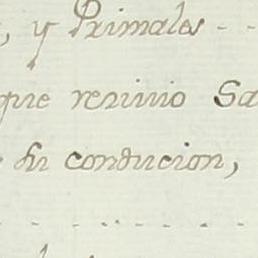 , y Primales - -
que renunio Sa
su conducion,